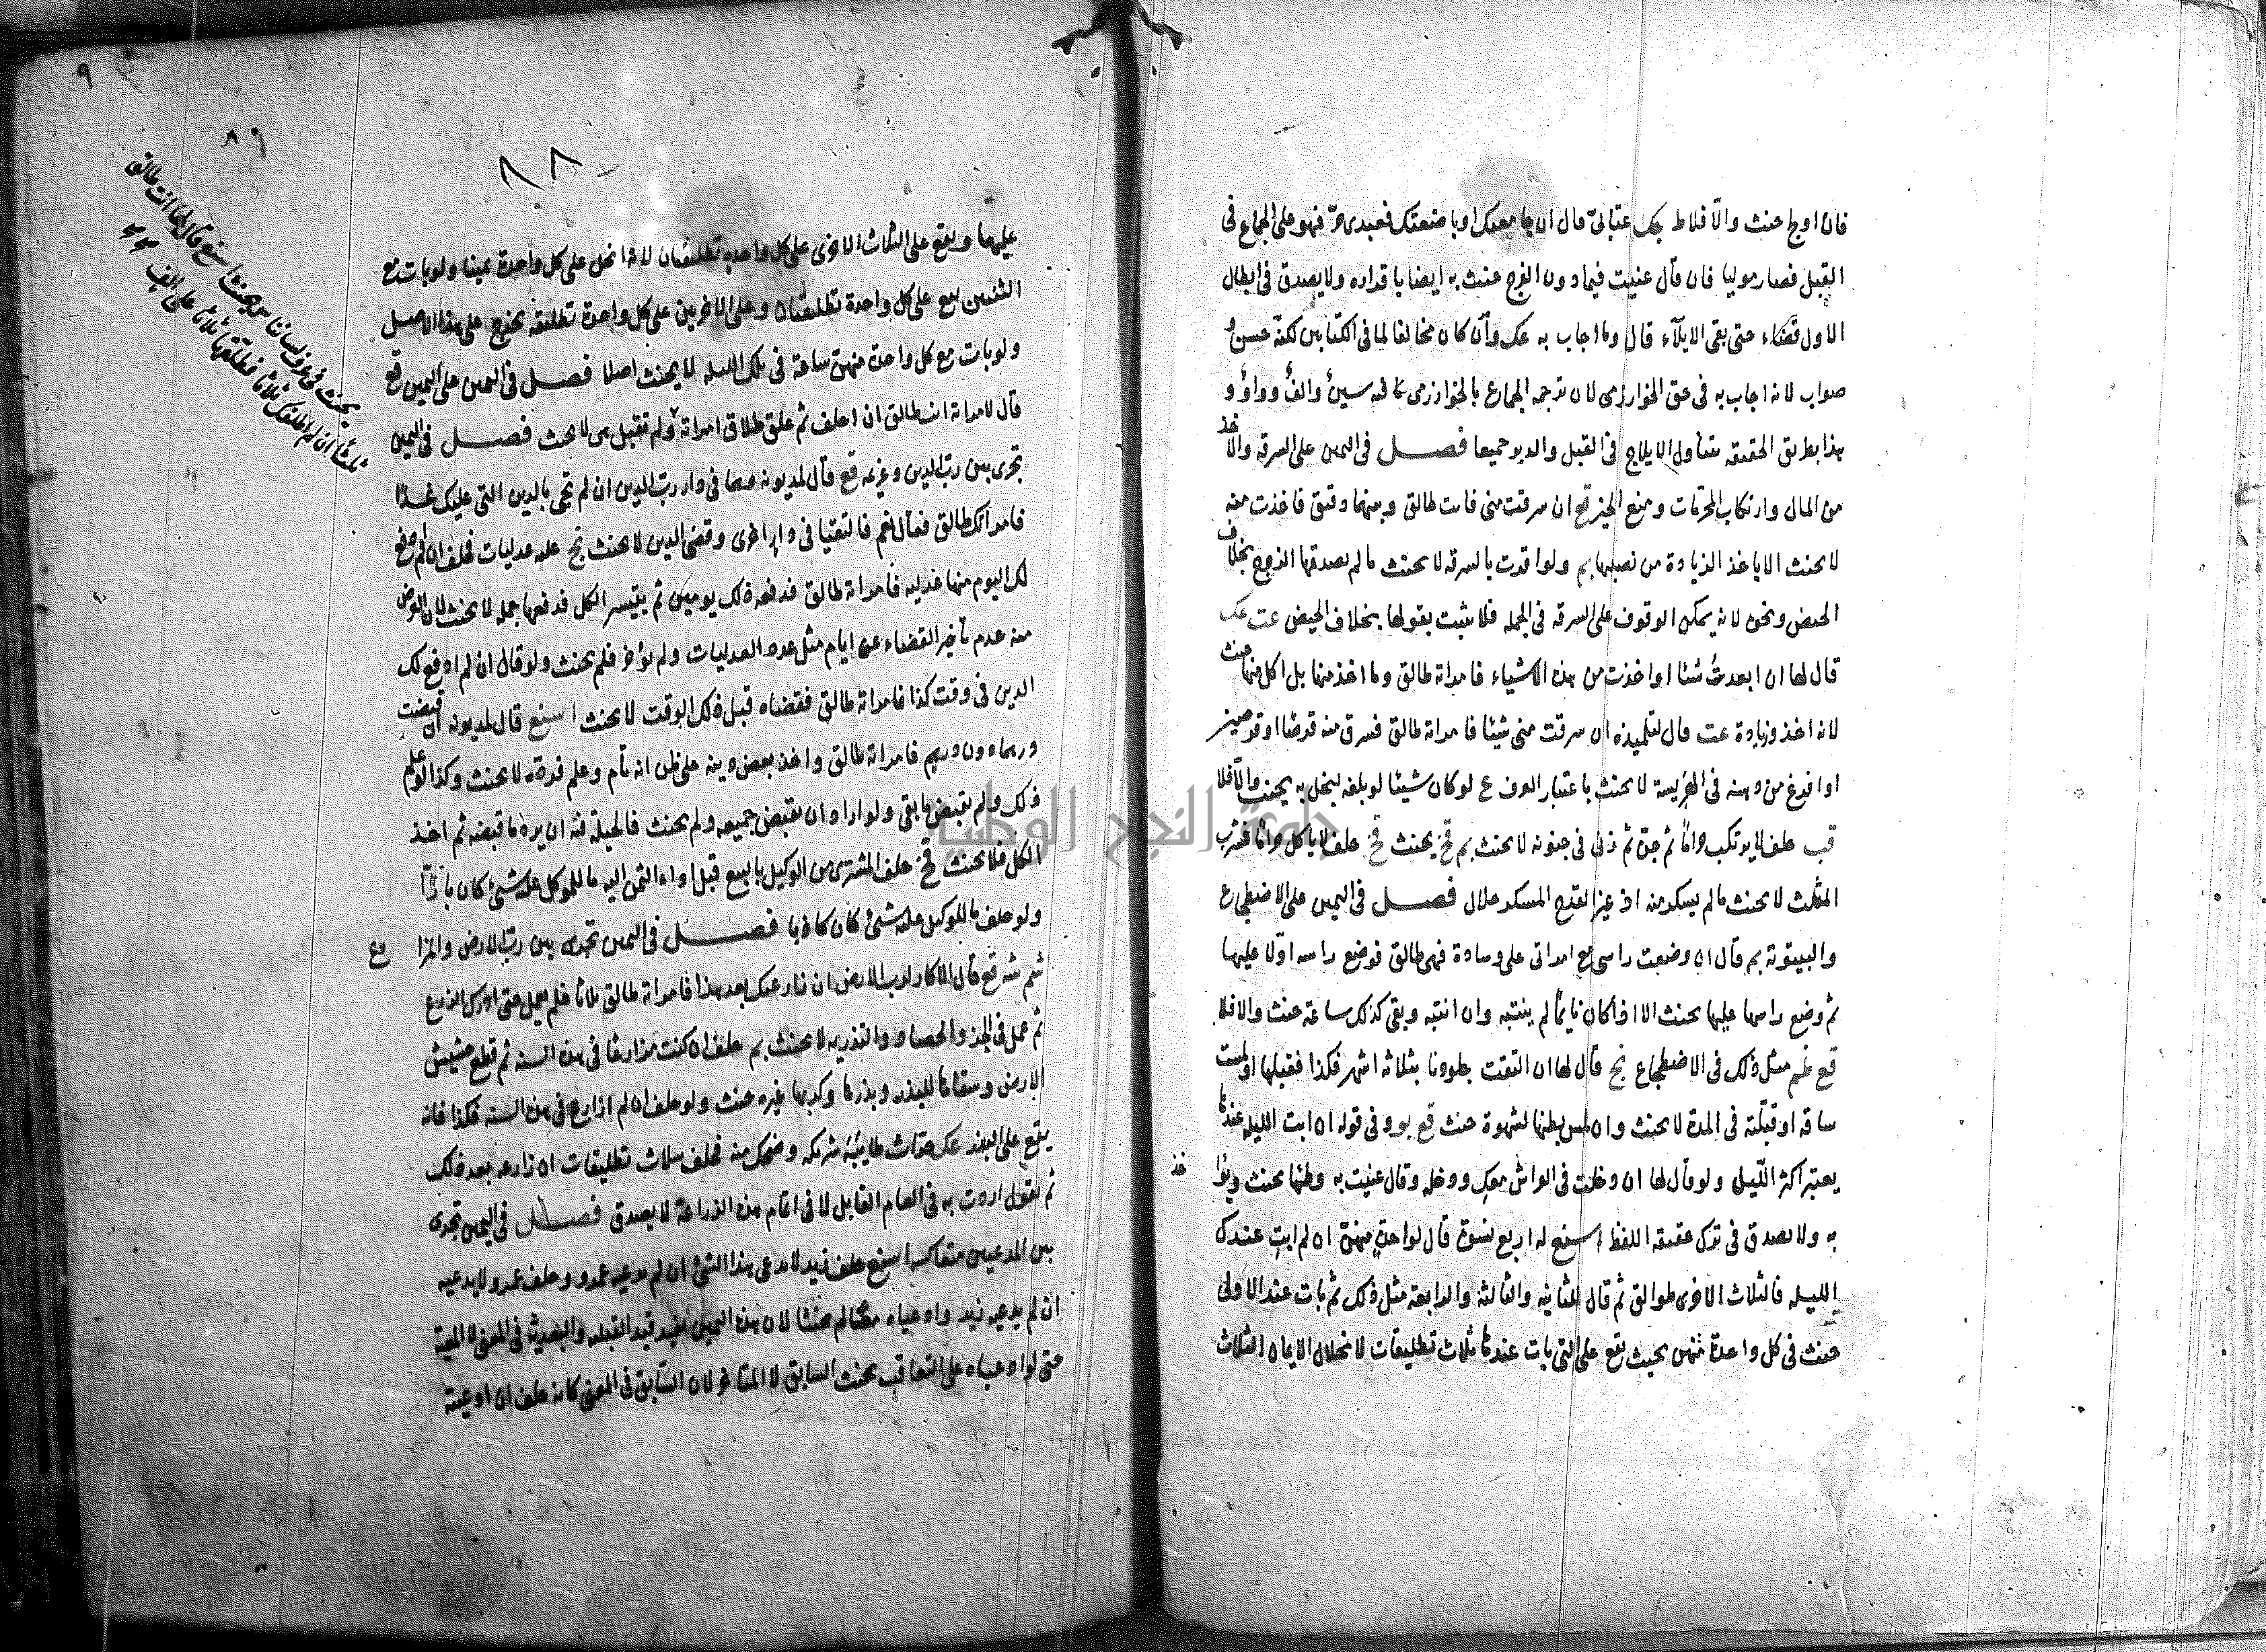 فان اولج حنث والا فلا ط بك عتابى قال ان جامعتك او باضعتك فعبدى حر فهو على الجماع فى
القبل فصار موليا فان قال عنيت فيما دون الفرج حنث به ايضا باقراره ولا يصدق فى ابطال
الاول قضاء حتى بقى الايلاء قال وما اجاب به عك وان كان مخالفا لما فى الكتابين لكنه حسن و
صواب لانه اجاب به فى حق الخوارزمى لان ترجمه الجماع بالخوارزمى سين والف وواو و
هذا بطريق الحقيقه يتناول الايلاج فى القبل والدبر جميعا فصل فى اليمين على السرقه والاخذ
من المال وارتكاب المحرمات ومنع الخبز قع ان سرقت منى فانت طالق وبينهما دقيق فاخذت منه
لا يحنث الا باخذ الزيادة من نصيبها بم ولو اقرت بالسرقه لا يحنث ما لم يصدقها الزوج بخلاف
الحيض ونحوه لانه يمكن الوقوف على السرقه فى الجمله فلا يثبت بقولها بخلاف الحيض عت عك
قال لها ان ابعدت شيئا او اخذت من هذه الاشياء فامراته طالق وما اخذ منها بل اكل منها حنث
لانه اخذ وزيادة عت قال لتلميذه ان سرقت منى شيئا فامراته طالق فسرق منه قرصا او قرصين
او افرغ من دهنه فى الهريسة لا يحنث باعتبار العرف ع لو كان شيئا لو بلغه يبخل به يحنث والا فلا
قب حلف لا يرتكب حراما ثم جن ثم زنى فى جنونه لا يحنث بم قخ يحنث قخ حلف لا ياكل حراما فشرب
المثلث لا يحنث ما لم يسكر منه اذ غير القدح المسكر حلال فصل فى اليمين على الاضطجاع
والبيتوتة بم قال ان وضعت راسى مع امراتى على وسادة فهى طالق فوضع راسه اولا عليها
ثم وضع راسها عليها يحنث الا اذا كان نايما لم ينتبه وان انتبه وبقى كذلك ساعة حنث والا فلا
قع ظم مثل ذلك فى الاضطجاع بخ قال لها ان التفتت جلودنا بثلاثه اشهر فكذا فقبلها او لمست
ساقه او قبلته فى المدة لا يحنث وان لمس بطنها لشهوة حنث قع بو و فى قوله ان ابت الليله عندها
يعتبر اكثر الليل ولو قال لها ان دخلت فى الفراش معك ودخله وقال عنيت به وطئها يحنث ويؤاخذ
به ولا يصدق فى ترك حقيقه اللفظ اسنع له اربع نسوة قال لواحدة منهن ان لم ابت عندك
الليله فالثلاث الاخرى طوالق ثم قال للثانيه والثالثه والرابعه مثل ذلك ثم بات عند الاولى
حنث فى كل واحدة منهن بحيث يقع على التى بات عندها ثلاث تطليقات لانحلال الايمان الثلاث
٩
٨٩
٨٨
عليها ويقع على الثلاث الاخرى على كل واحدة تطليقتان لانه انحل على كل واحدة يمينا ولو بات مع
الثنتين يقع على كل واحدة تطليقتان وعلى الاخريين على كل واحدة تطليقه يخرج على هذا الاصل
ولو بات مع كل واحدة منهن ساعة فى تلك الليله لا يحنث اصلا فصل فى اليمين على اليمين قع
قال لامراته انت طالق ان احلف ثم علق طلاق امراته ولم تقبل هى لا يحنث فصل فى اليمين
تجرى بين رب الدين وغريمه قع قال لمديونه وهما فى دار رب الدين ان لم تجى بالدين التى عليك غدا
فامراتك طالق فقال نعم فالتقيا فى دار اخرى وقضى الدين لا يحنث بخ عليه عدليات فحلف ان لم ادفع
لك اليوم منها عدليه فامراته طالق فدفعه ذلك يومين ثم يتيسر الكل فدفعها جمله لا يحنث لان الغرض
منه عدم تاخير القضاء عن ايام مثل عدد العدليات ولم يؤخر فلم يحنث ولو قال ان لم ادفع لك
الدين فى وقت كذا فامراته طالق فقضاه قبل ذلك الوقت لا يحنث اسنع قال لمديونه ان قبضت
درهما دون درهم فامراته طالق واخذ بعض دينه على ظن انه تام وعلم فرده لا يحنث وكذا لو علم
ذلك ولم يقبض ما بقى ولو اراد ان يقبض جميعه ولم يحنث فالحيلة فيه ان يرد ما قبضه ثم اخذ
الكل فلا يحنث قخ حلف المشترى من الوكيل بالبيع قبل اداء الثمن اليه ما للموكل عليه شئ كان بارا
ولو حلف ما للوكيل عليه شئ كان كاذبا فصل فى اليمين تجرى بين رب الارض والمزارع
شم شه قع قال الاكار لرب الارض ان زارعتك بعد هذا فامراته طالق ثلاثا فلم يعمل حتى ادرك الزرع
ثم عمل فى الجز والحصاد والتذريه لا يحنث بم حلف ان كنت مزارعا فى هذه السنه ثم قطع حشيش
الارض وسقاها للبذر وبذرها وكربها غيره حنث ولو حلف ان لم ازارع فى هذه السنه فكذا فانه
يقع على البذر عك حراث شريكه وضحك منه فحلف بثلاث تطليقات ان زارعه بعد ذلك
ثم يقول اردت به فى العام القابل لا فى اتمام هذه الزراعة لا يصدق فصل فى اليمين تجرى
بين المدعيين متعاكسه اسنع حلف زيد لا يدعى هذا الشئ ان لم يدعيه عمرو وحلف عمرو لا يدعيه
ان لم يدعيه زيد وادعياه معا لم يحنثا لان هذه اليمين تفيد قيد القبليه والبعديه فى المعنى لا المعية
حتى لو ادعياه على التعاقب يحنث السابق لا المتاخر لان السابق فى المعنى كانه حلف ان ادعيته
يحنث فى عرف لساننا سنع قال لها انت طالق
ثلثا ان لم اطلقك ثلاثا فطلقها ثلاثا على الف